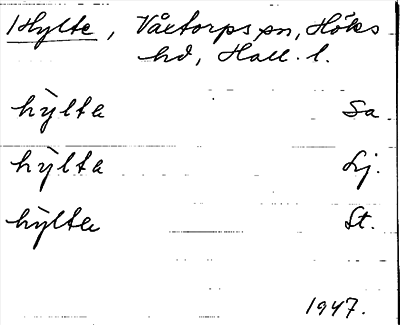 Hylte, Våxtorps sn, Höks
hd, Hall. l.
hỳlta Sa
hỳlta Lj.
hỳlta St.
1947.